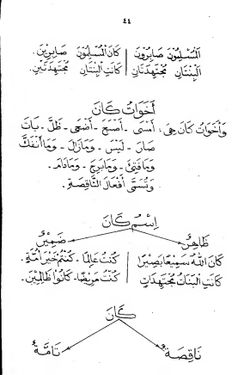 ٤٤
المُسْلِمُونَ صَابِرُونَ كَانَ المُسْلِمُونَ صَابِرِيْنَ.
البِنْتَانِ مُجْتَهِدَتَانِ كَانَتِ البِنْتَانِ مُجْتَهِدَتَيْنِ.
أَخَوَاتُ كَانَ
وَأَخَوَاتُ كَانَ هِيَ: أَمْسَى - أَصْبَحَ - أَضْحَى - ظَلَّ - بَاتَ
صَارَ - لَيْسَ - وَمَازَالَ - وَمَا انْفَكَّ
وَمَافَتِئَ - وَمَابَرِحَ - وَمَادَامَ.
وَتُسَمَّى أَفْعَالَ النَّاقِصَةِ.
اِسْمُ كَانَ
ظَاهِرٌ ضَمِيْرٌ
كَانَ اللهُ سَمِيْعًا بَصِيْرًا كُنْتُ عَالِمًا. كُنْتُمْ خَيْرَ أُمَّةٍ.
كَانَتِ البَنَاتُ مُجْتَهِدَاتٍ كُنْتُ مَرِيْضًا. كَانُوْا ظَالِمِيْنَ.
كَانَ
نَاقِصَةٌ تَامَّةٌ